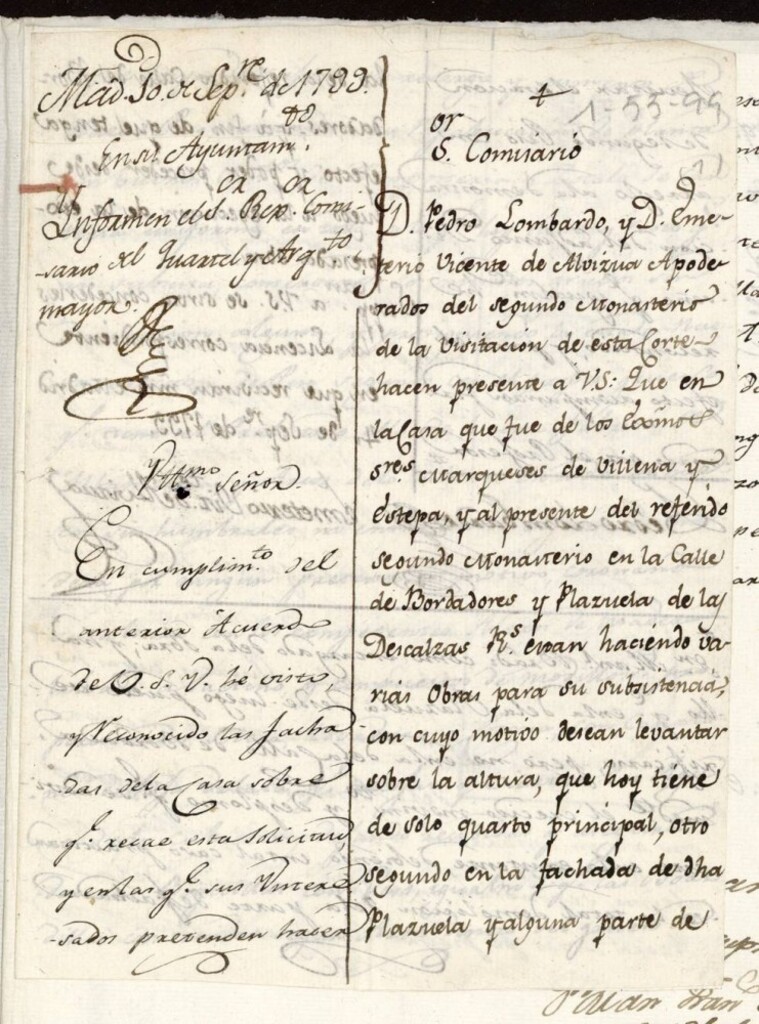 Mad. 30. de Sep.re de 1799.
En su Ayuntam.to
Informen el S.or Rex.or Comi-
sario del Quartel y Arq.to
mayor.
Yttmo Señor.
En cumplim.to del
anterior Acuerdo
de V. S. Y. hé visto,
y Reconocido las facha
das de la Casa sobre
q.e recae esta Solicitud,
y en las q.e sus Yntere
-sados pretenden hacer
+
1-55-99
S.or Comisario
D. Pedro Lombardo, y D. Eme-
terio Vicente de Apode-
rados del segundo Monasterio
de la Visitacion de esta Corte
hacen presente a VS: Que en
la Casa que fue de los Exmos
sres Marqueses de Villena y
Estepa, y al presente del referido
segundo Monasterio en la Calle
de Bordadores y Plazuela de las
Descalzas R.s estan haciendo va-
rias Obras para su subsistencia,
con cuyo motivo desean levantar
sobre la altura, que hoy tiene
de solo quarto principal, otro
segundo en la fachada de dha
Plazuela y alguna parte de